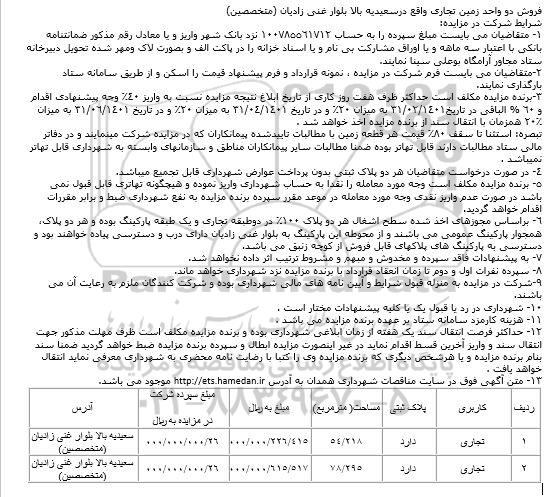 فروش دو واحد زمین تجاری واقع درسعیدیه بالا بلوار غنی زادیان (متخصصین)
شرایط شرکت در مزایده:
۱- متقاضیان می بایست مبلغ سپرده را به حساب ۱۰۰۷۸۵۵٦۱۷۱۲ نزد بانک شهر واریز و یا معادل رقم مذکور ضمانتنامه
بانکی با اعتبار سه ماهه و یا اوراق مشارکت بی نام و یا اسناد خزانه را در پاکت الف و بصورت لاک ومهر شده تحویل دبیرخانه
ستاد مجاور آرامگاه بوعلی سینا نمایند.
۲-متقاضیان می بایست فرم شرکت در مزایده ، نمونه قرارداد و فرم پیشنهاد قیمت را اسکن و از طریق سامانه ستاد
بارگذاری نمایند.
۳-برنده مزایده مکلف است حداکثر ظرف هفت روز کاری از تاریخ ابلاغ نتیجه مزایده نسبت به واریز ۴۰٪ وجه پیشنهادی اقدام
و ۶۰ % الباقی در تاریخ۳۱/۰۲/۱۴۰۱ به میزان ۲۰٪ و در تاریخ ۳۱/۰۴/۱۴۰۱ به میزان ۲۰٪ و در تاریخ ۳۱/۰۶/۱۴۰۱ به میزان
۲۰٪ همزمان با انتقال سند از برنده مزایده اخذ خواهد شد .
تبصره: استثنا تا سقف ۸۰٪ قیمت هر قطعه زمین با مطالبات تاییدشده پیمانکاران که در مزایده شرکت مینمایند و در دفاتر
مالی ستاد مطالبات دارند قابل تهاتر بوده ضمنا مطالبات سایر پیمانکاران مناطق و سازمانهای وابسته به شهرداری قابل تهاتر
نمیباشد .
۴- در صورت درخواست متقاضیان هر دو پلاک ثبتی بدون پرداخت عوارض شهرداری قابل تجمیع میباشد.
۵- برنده مزایده مکلف است وجه مورد معامله را نقدا به حساب شهرداری واریز نموده و هیچگونه تهاتری قابل قبول نمی
باشد در صورت عدم واریز نقدی وجه مورد معامله در موعد مقرر سپرده برنده مزایده به نفع شهرداری ضبط و برابر مقررات
اقدام خواهد گردید.
۶- براساس مجوزهای اخذ شده سطح اشغال هر دو پلاک ۱۰۰٪ در دوطبقه تجاری و یک طبقه پارکینگ بوده و هر دو پلاک،
همجوار پارکینگ عمومی می باشند و از محوطه این پارکینگ به بلوار غنی زادیان دارای درب و دسترسی پیاده خواهند بود و
دسترسی به پارکینگ های پلاکهای قابل فروش از کوچه زنبق می باشد.
۷- به پیشنهادات فاقد سپرده و مخدوش و مبهم و مشروط ترتیب اثر داده نخواهد شد.
۸- سپرده نفرات اول و دوم تا زمان انعقاد قرارداد با برنده مزایده نزد شهرداری خواهد ماند.
۹-شرکت در مزایده به منزله قبول شرایط و آیین نامه های مالی شهرداری بوده و شرکت کنندگان ملزم به رعایت آن می
باشند.
۱۰- شهرداری در رد یا قبول یک یا کلیه پیشنهادات مختار است .
۱۱- هزینه کارمزد سامانه ستاد بر عهده برنده مزایده می باشد .
۱۲- حداکثر فرصت انتقال سند یک هفته از زمان ابلاغی شهرداری بوده و برنده مزایده مکلف است ظرف مهلت مذکور جهت
انتقال سند و واریز آخرین قسط اقدام نماید در غیر اینصورت مزایده ابطال و سپرده برنده مزایده ضبط خواهد گردید ضمنا سند
بنام برنده مزایده و یا هرشخص دیگری که برنده مزایده وی را کتبا با رضایت نامه محضری به شهرداری معرفی نماید انتقال
خواهد یافت .
۱۳- متن آگهی فوق در سایت مناقصات شهرداری همدان به آدرس http://ets.hamedan.ir موجود می باشد.
ردیف کاربری پلاک ثبتی مساحت( مترمربع) مبلغ به ریال مبلغ سپرده شرکت در مزایده به ریال آدرس
۱ تجاری دارد ۵۴/۲۱۸ ۰۰۰/۰۰۰/۲۲۶/۴۱۵ ۰۰۰/۰۰۰/۰۰۰/۲۶ سعیدیه بالا بلوار غنی زادیان (متخصصین)
۲ تجاری دارد ۷۸/۲۹۵ ۰۰۰/۰۰۰/۶۱۵/۵۱۷ ۰۰۰/۰۰۰/۰۰۰/۲۶ سعیدیه بالا بلوار غنی زادیان (متخصصین)